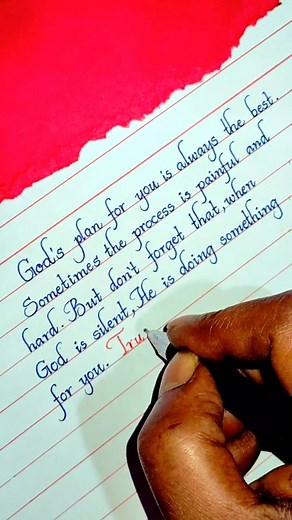 God's plan for you is always the best.
Sometimes the process is painful and
hard. But don't forget that, when
God is silent, He is doing something
for you. Tru